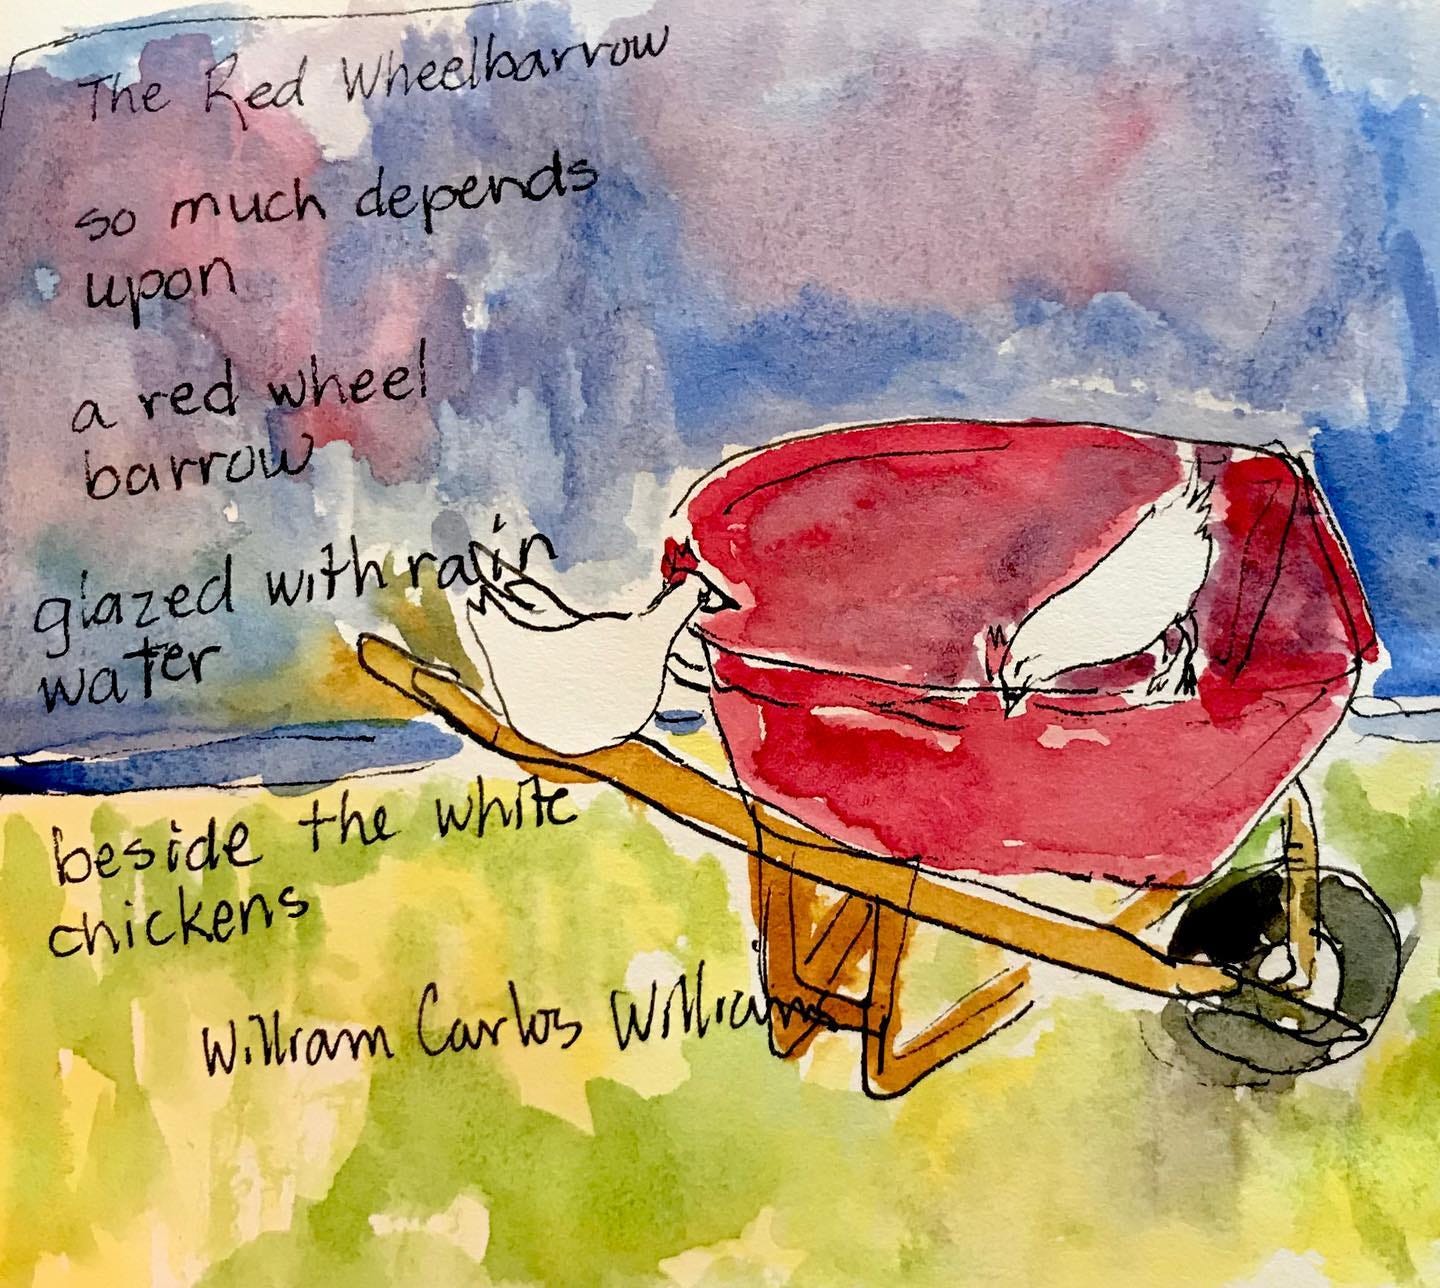 The Red Wheelbarrow
so much depends
upon
a red wheel
barrow
glazed with rain
water
beside the white
chickens
William Carlos Williams